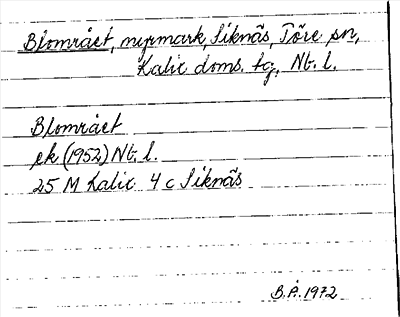 Blområet, myrmark, Siknäs, Töre sn,
Kalix doms. tg, Nb. l.
Blområet
ek (1952) Nb. l.
25 M Kalix 4 c Siknäs
B.P. 1972